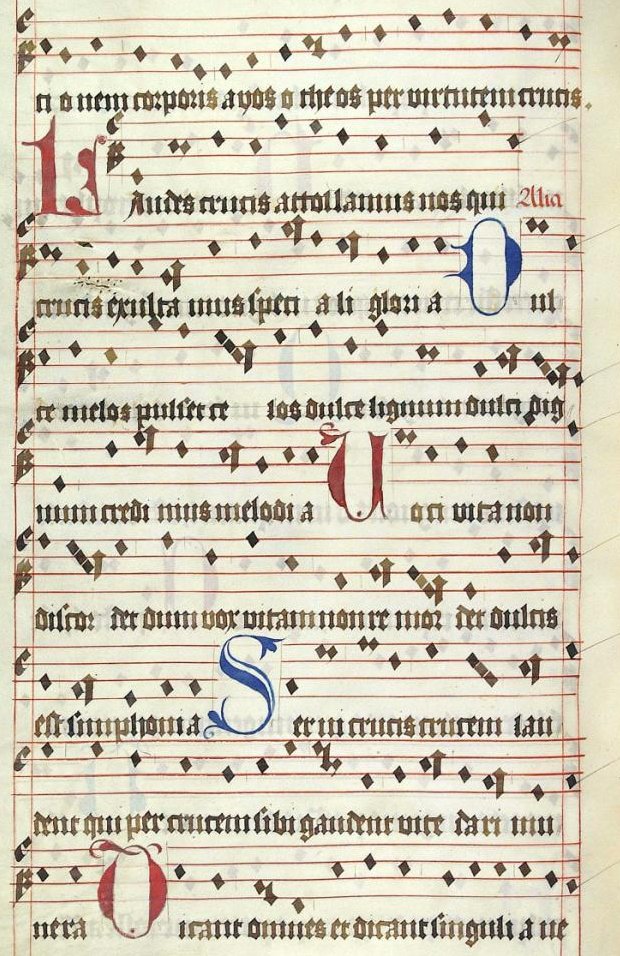 ti o nem corporis ayos o theos per virtutem crucis.
Laudes crucis attollamus nos qui Alia
crucis exulta mus speci a li glori a Dul
ce melos pulset ce los dulce lignum dulci dig
num credi mus melodi a Uoci vita non
discor det dum vox vitam non re mor det dulcis
est simphonia Serui crucis crucem lau
dent qui per crucem sibi gaudent vite dari mu
nera Dicant omnes et dicant singuli a ue